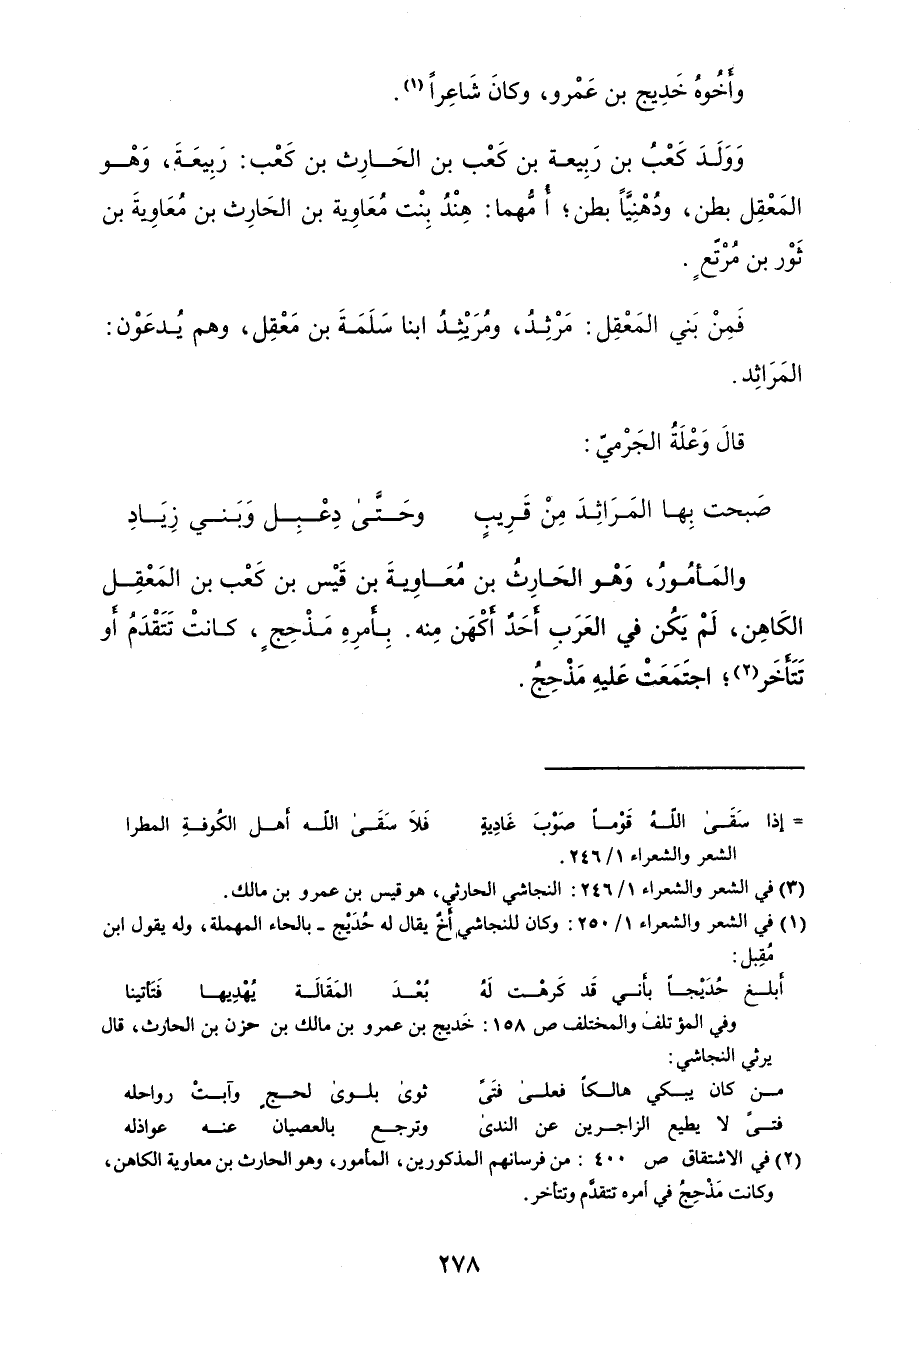 وأَخُوهُ خَدِيج بن عَمْرو، وكانَ شَاعِراً (١).
وَوَلَدَ كَعْبُ بن رَبِيعة بن كَعْب بن الحَارث بن كَعْب: رَبِيعَةَ، وَهْو
المَعْقِل بطن، ودُهْنِيَّاً بطن؛ أُمُّهما: هِنْدُ بِنْت مُعَاوِية بن الحَارث بن مُعَاوِيةَ بن
ثَوْر بن مُرْتَّعٍ.
فَمِنْ بَني المَعْقِل: مَرْثِدُ، ومُرَيْثِدُ ابنا سَلَمَةَ بن مَعْقِل، وهم يُدعَوْن:
المَرَاثِد.
قالَ وَعْلَةُ الجَرْميّ:
صَبحت بِها المَرَاثِدَ مِنْ قَرِيبٍ وحَتَّىٰ دِعْبِل وَبَني زِيَادِ
والمَأمُورُ، وَهْو الحَارِثُ بن مُعَاوِيةَ بن قَيْس بن كَعْب بن المَعْقِل
الكَاهِن، لَمْ يَكُن في العَرَبِ أَحَدٌ أَكْهَن مِنه. بِأَمرِهِ مَذْحِجٍ، كانتْ تَتَقْدَمُ أو
تَتَأَخَر(٢)؛ اجتَمَعَتْ عَليهِ مَذْحِجُ.
= إذا سَقَىٰ اللّهُ قَوْماً صَوْبَ غَادِيةٍ فَلاَ سَقَىٰ اللّه أهل الكُوفةِ المطرا
الشعر والشعراء ١/ ٢٤٦.
(٣) في الشعر والشعراء ١/ ٢٤٦: النجاشي الحارثي، هو قيس بن عمرو بن مالك.
(١) في الشعر والشعراء ١/ ٢٥٠: وكان للنجاشي أَخٌ يقال له حُدَيْج - بالحاء المهملة، وله يقول ابن
مُقِبل:
أبلغ حُدَيْجاً بأني قَد كَرهْت لَهُ بُعْدَ المَقَالَة يُهْدِيها فَتَأتينا
وفي المؤتلف والمختلف ص ١٥٨: خَديج بن عمرو بن مالك بن حزن بن الحارث، قال
يرثي النجاشي:
من كان يبكي هالكاً فعلىٰ فتىً ثوىٰ بلوىٰ لحجٍ وآبتْ رواحله
فتىً لا يطيع الزاجرين عن الندىٰ وترجع بالعصيان عنه عواذله
(٢) في الاشتقاق ص ٤٠٠: من فرسانهم المذكورين، المأمور، وهو الحارث بن معاوية الكاهن،
وكانت مَذْحِجُ في أمره تتقدَّم وتتأخر.
٢٧٨